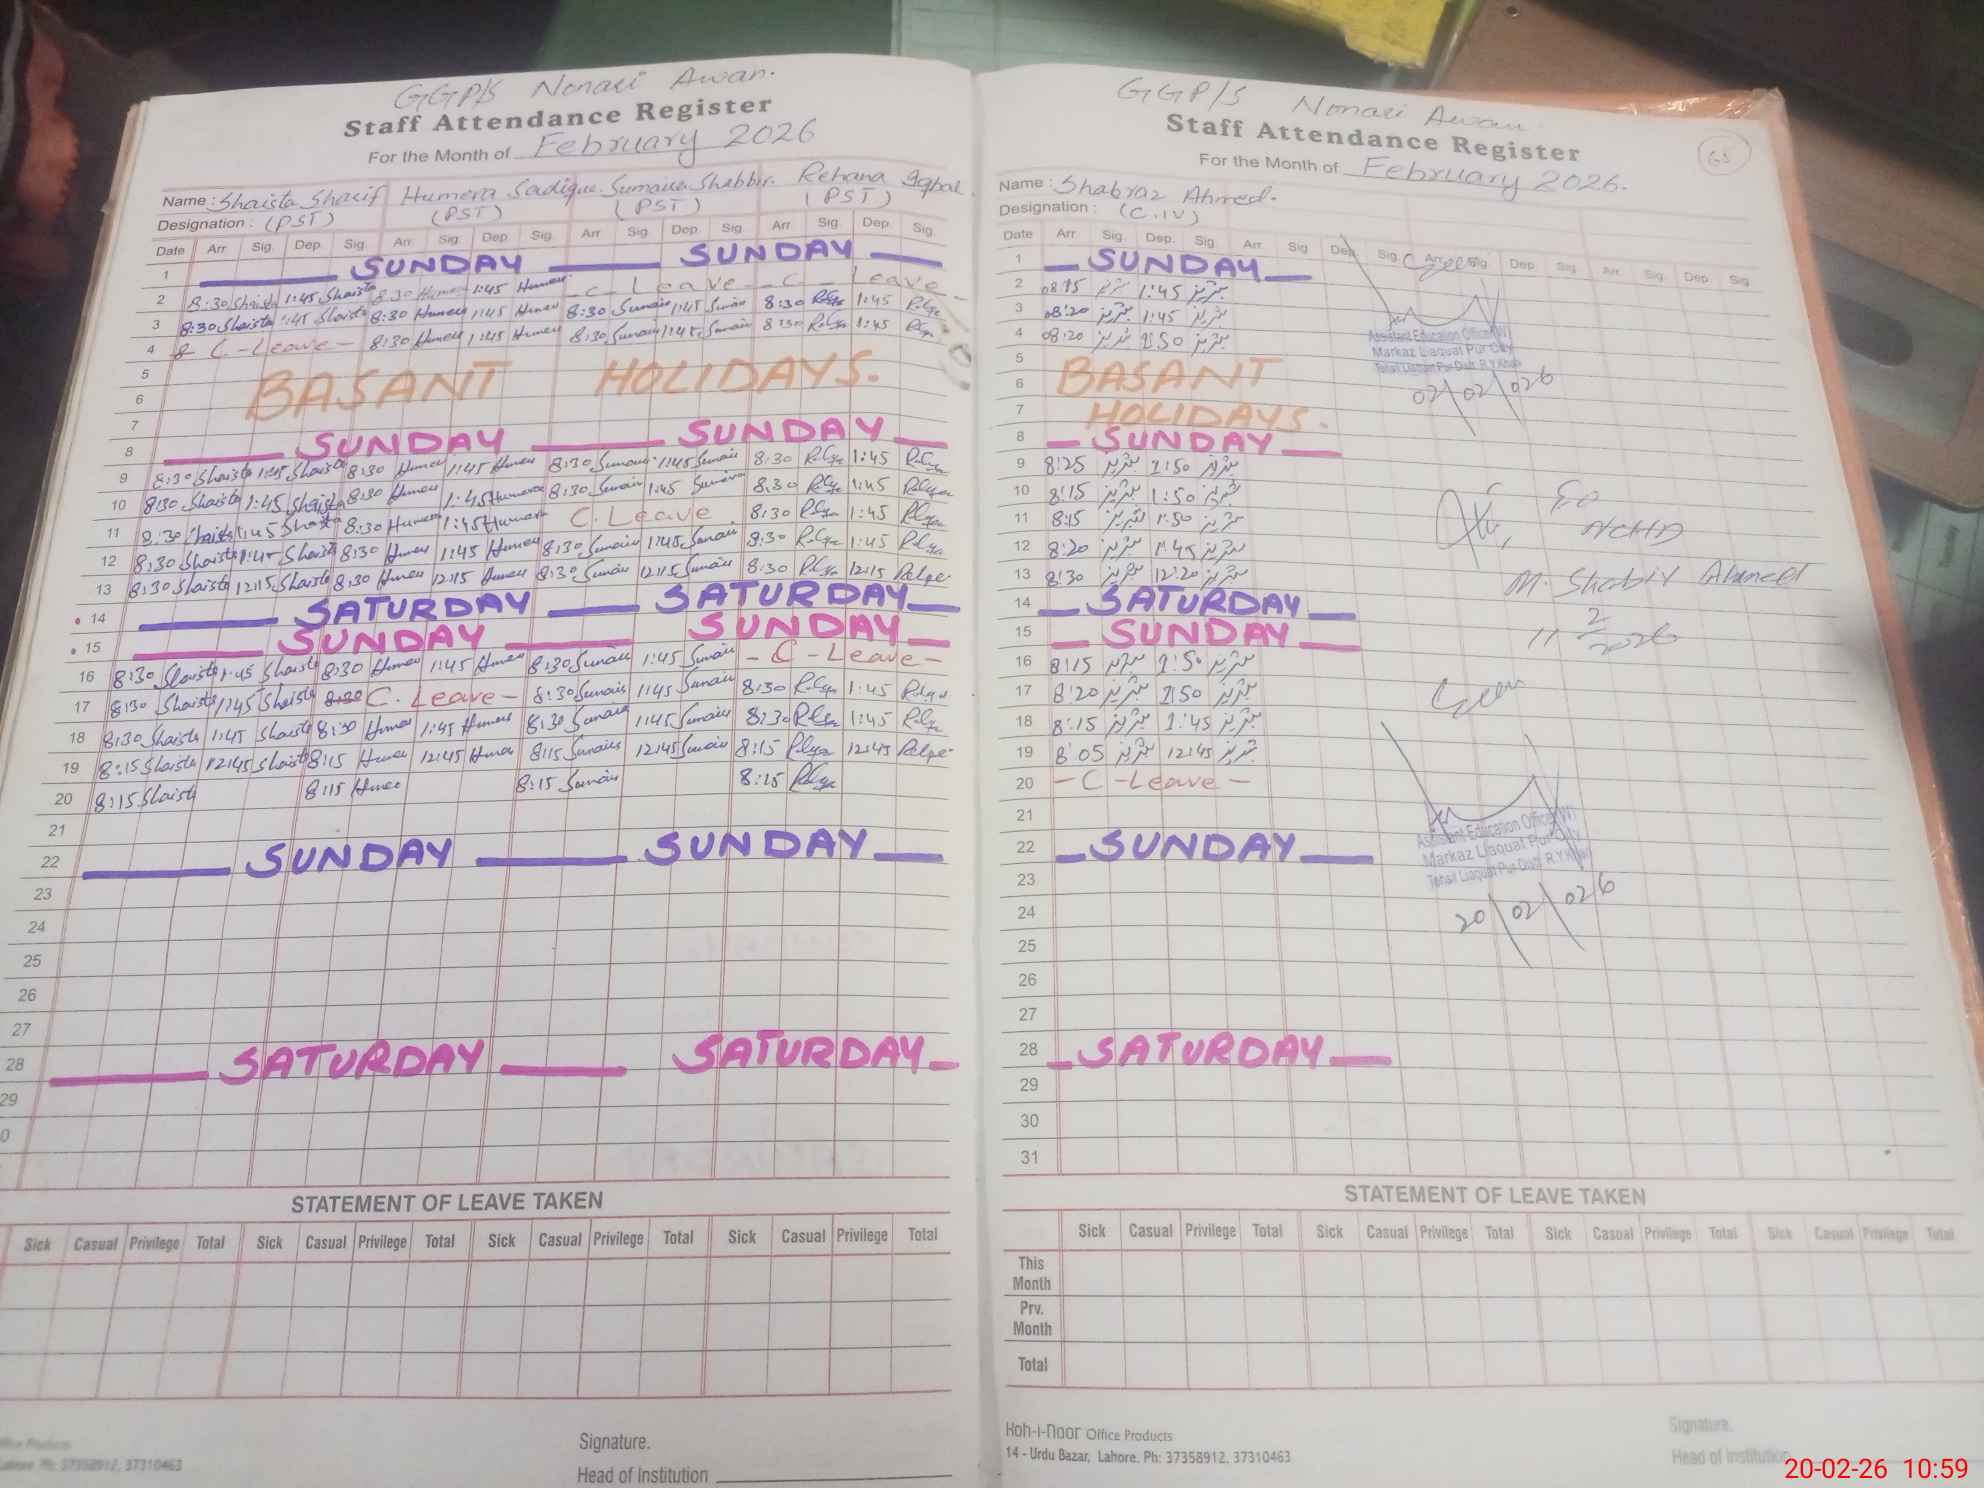 GGP/S Nonari Awan.
Staff Attendance Register
For the Month of February 2026
Name : Shaista Sharif Humera Sadique. Sumaira Shabbir. Rehana Iqbal.
Designation : (PST) (PST) (PST) (PST)
Date Arr. Sig. Dep. Sig. Arr. Sig. Dep. Sig. Arr. Sig. Dep. Sig. Arr. Sig. Dep. Sig.
1 SUNDAY SUNDAY
2 8:30 Shaista 1:45 Shaista 8:30 Humera 1:45 Humera - C - Leave - C - Leave -
3 8:30 Shaista 1:45 Shaista 8:30 Humera 1:45 Humera 8:30 Sumaira 1:45 Sumaira 8:30 1:45
4 C. - Leave - 8:30 Humera 1:45 Humera 8:30 Sumaira 1:45 Sumaira 8:30 1:45
5 BASANT HOLIDAYS.
6
7
8 SUNDAY SUNDAY
9 8:30 Shaista 1:45 Shaista 8:30 Humera 1:45 Humera 8:30 Sumaira 1:45 Sumaira 8:30 1:45
10 8:30 Shaista 1:45 Shaista 8:30 Humera 1:45 Humera 8:30 Sumaira 1:45 Sumaira 8:30 1:45
11 8:30 Shaista 1:45 Shaista 8:30 Humera 1:45 Humera C. Leave 8:30 1:45
12 8:30 Shaista 1:45 Shaista 8:30 Humera 1:45 Humera 8:30 Sumaira 1:45 Sumaira 8:30 1:45
13 8:30 Shaista 12:15 Shaista 8:30 Humera 12:15 Humera 8:30 Sumaira 12:15 Sumaira 8:30 12:15
14 SATURDAY SATURDAY
15 SUNDAY SUNDAY
16 8:30 Shaista 1:45 Shaista 8:30 Humera 1:45 Humera 8:30 Sumaira 1:45 Sumaira - C - Leave -
17 8:30 Shaista 1:45 Shaista 8:30 C. Leave - 8:30 Sumaira 1:45 Sumaira 8:30 1:45
18 8:30 Shaista 1:45 Shaista 8:30 Humera 1:45 Humera 8:30 Sumaira 1:45 Sumaira 8:30 1:45
19 8:15 Shaista 12:45 Shaista 8:15 Humera 12:45 Humera 8:15 Sumaira 12:45 Sumaira 8:15 12:45
20 8:15 Shaista 8:15 Humera 8:15 Sumaira 8:15
21
22 SUNDAY SUNDAY
23
24
25
26
27
28 SATURDAY SATURDAY
29
0
STATEMENT OF LEAVE TAKEN
Sick Casual Privilege Total Sick Casual Privilege Total Sick Casual Privilege Total Sick Casual Privilege Total
Office Products
Lahore. Ph: 37358912, 37310463
Signature.
Head of Institution
GGP/S Nonari Awan.
Staff Attendance Register
65
For the Month of February 2026.
Name : Shabraz Ahmed.
Designation : (C.IV)
Date Arr. Sig. Dep. Sig. Arr. Sig. Dep. Sig. Arr. Sig. Dep. Sig. Arr. Sig. Dep. Sig.
1 SUNDAY
2 08:15 1:45
3 08:20 1:45
4 08:20 1:50
Assistant Education Officer (W)
Markaz Liaquat Pur City
Tehsil Liaquat Pur Distt. R.Y.Khan
02/02/026
5 BASANT
6
7 HOLIDAYS.
8 SUNDAY
9 8:25 1:50
10 8:15 1:50
11 8:15 1:50
12 8:20 1:45
13 8:30 12:20
14 SATURDAY
15 SUNDAY
16 8:15 1:50
17 8:20 1:50
18 8:15 1:45
19 8:05 12:45
20 - C - Leave -
21
22 SUNDAY
23
24
25
26
27
28 SATURDAY
29
30
31
NCHD
M. Shabir Ahmed
11 2 2026
Assistant Education Officer (W)
Markaz Liaquat Pur City
Tehsil Liaquat Pur Distt. R.Y.Khan
20/02/026
STATEMENT OF LEAVE TAKEN
Sick Casual Privilege Total Sick Casual Privilege Total Sick Casual Privilege Total Sick Casual Privilege Total
This Month
Prv. Month
Total
Koh-i-noor Office Products
14 - Urdu Bazar, Lahore. Ph: 37358912, 37310463
Signature.
Head of Institution
20-02-26 10:59